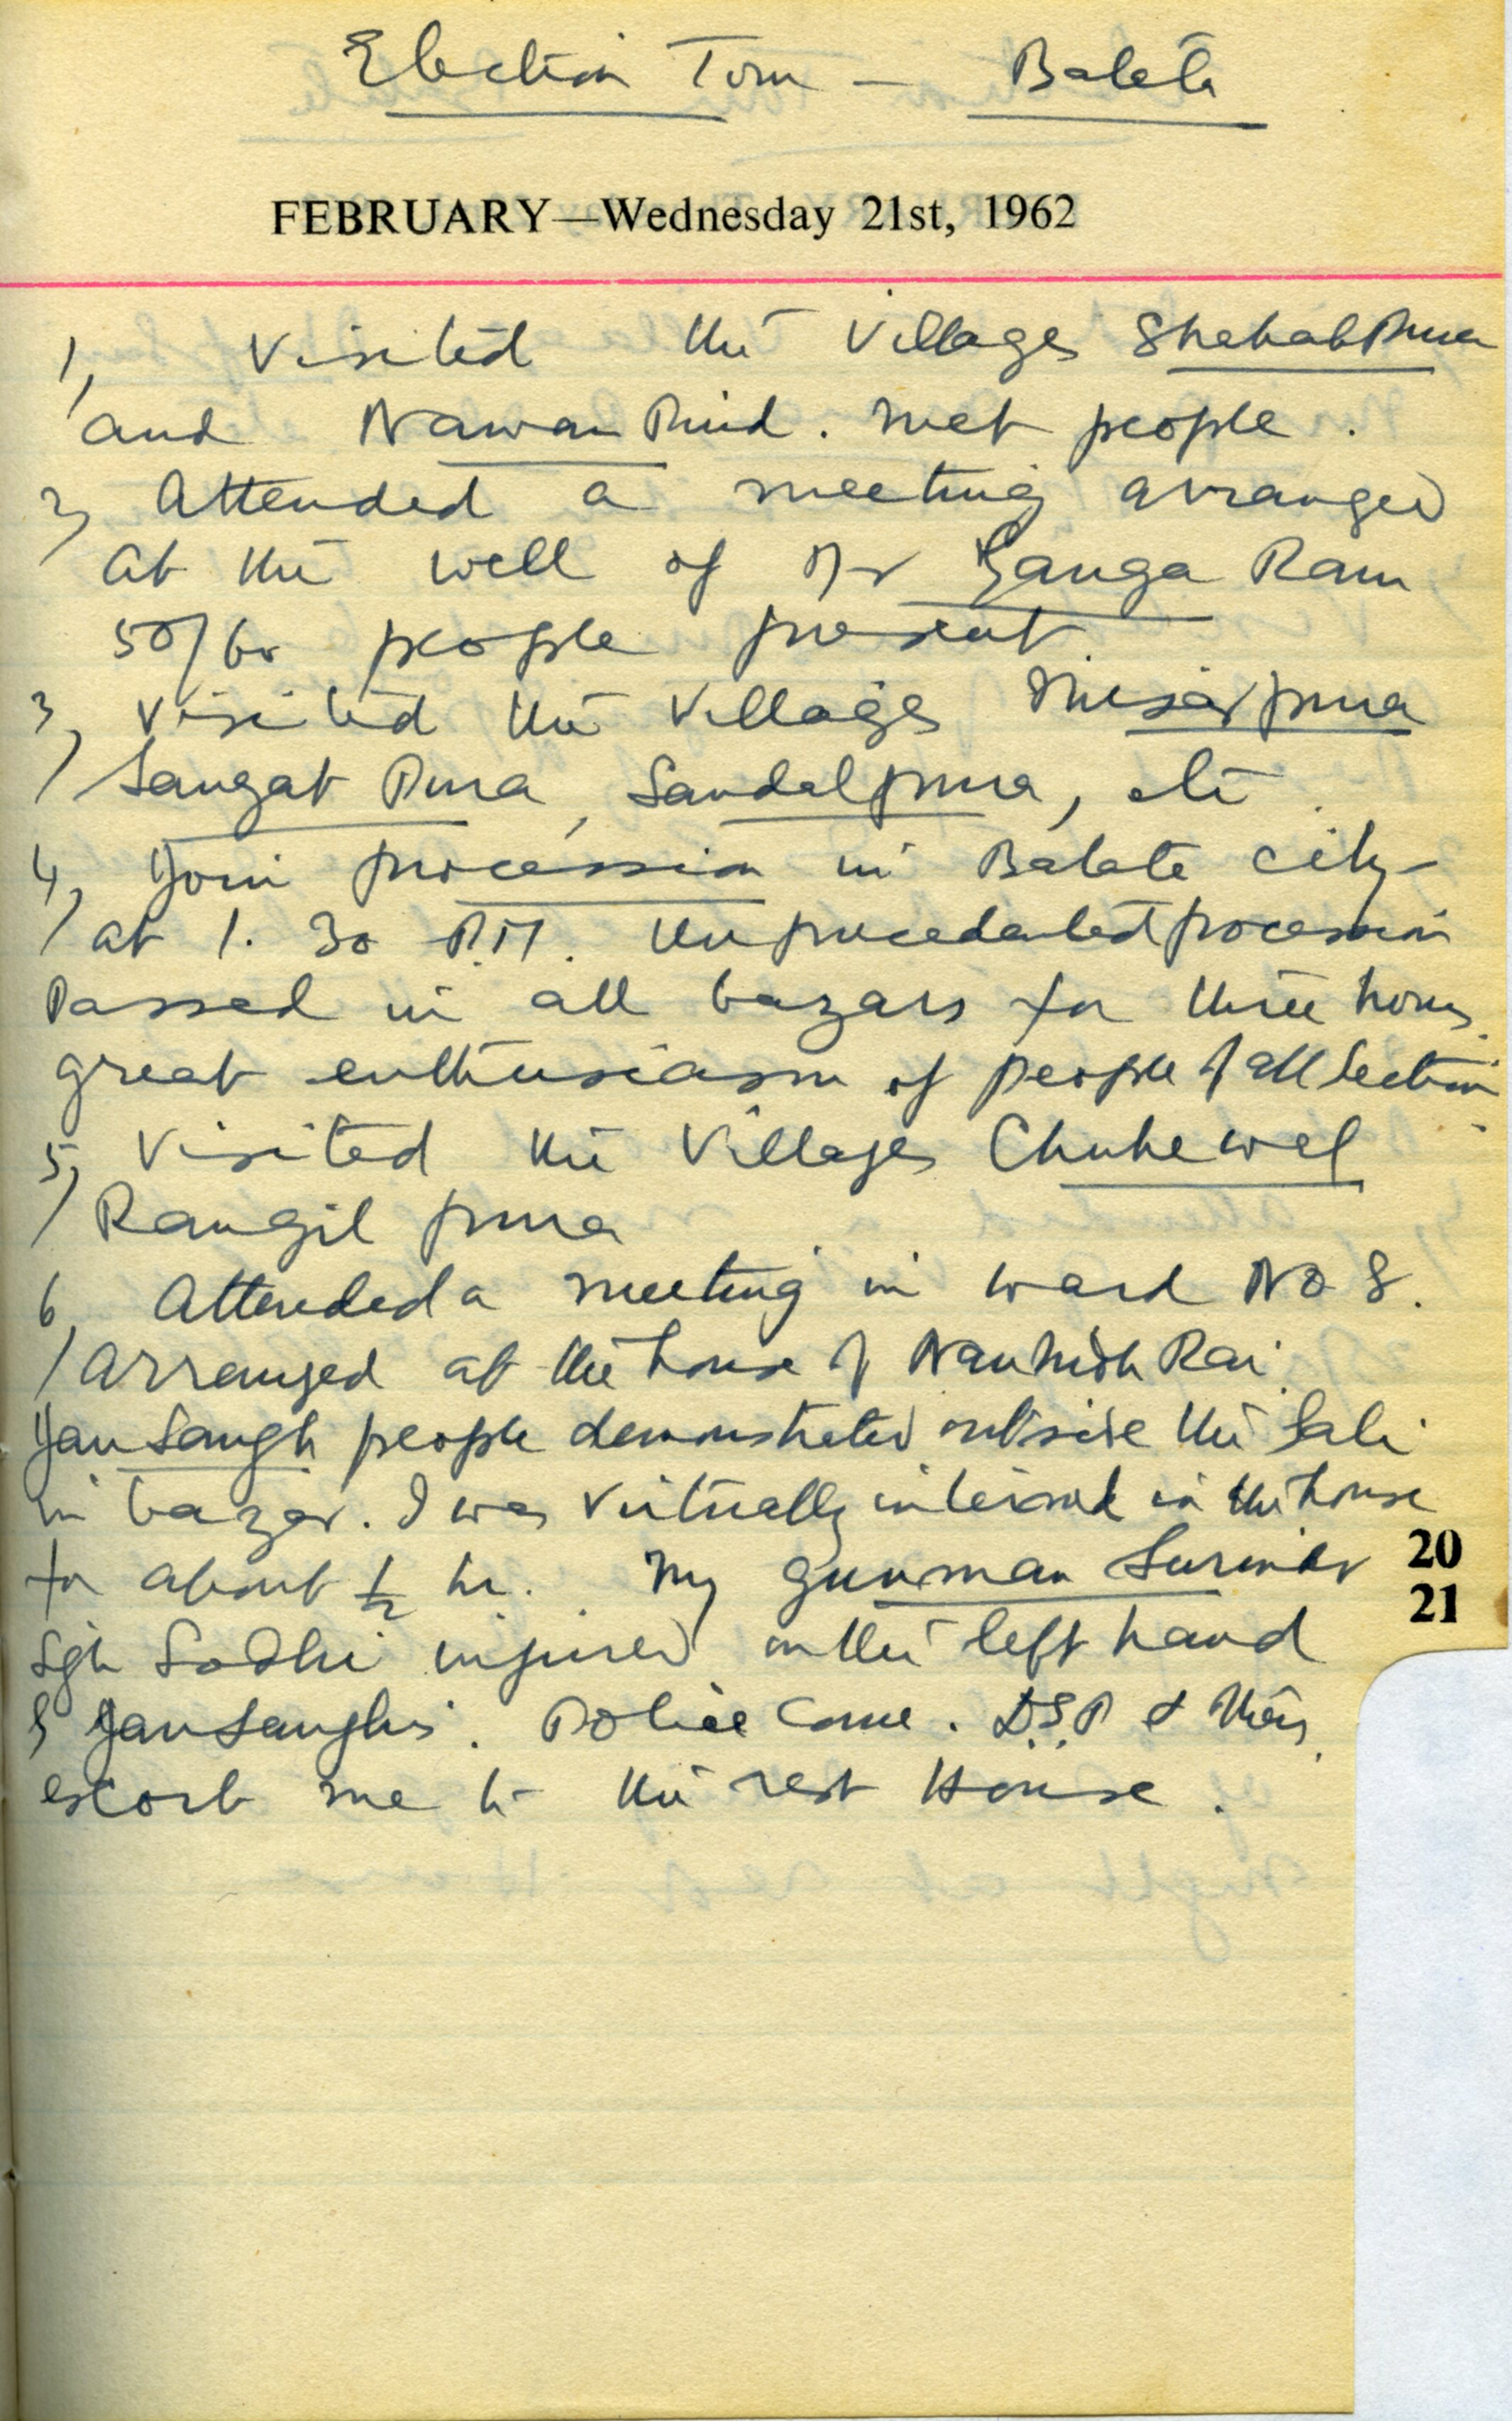 Election Tour — Batala
FEBRUARY—Wednesday 21st, 1962
1, Visited the Villages Shahabpura
and Nawan Pind. met people.
2, Attended a meeting arranged
at the well of Mr Ganga Ram
50/60 people present
3, Visited the Villages Misarpura
Sangat Pura, Sandalpura, etc.
4, Join procession in Batala city
at 1.30 P.M. Unprecedented procession
Passed in all bazars for three hours
great enthusiasm of people of all Section
5, Visited the Villages Chuhewal
Rangilpura
6, Attended a meeting in ward No 8.
Arranged at the house of Rai.
Jan Sangh people demonstrated outside the Gali
in bazar. I was virtually interned in the house
for about ½ hr. My gunman Surinder 20
Sgh Sodhi injured on the left hand 21
Jan Sanghis. Police came. D.S.P &
escort me to the rest House.